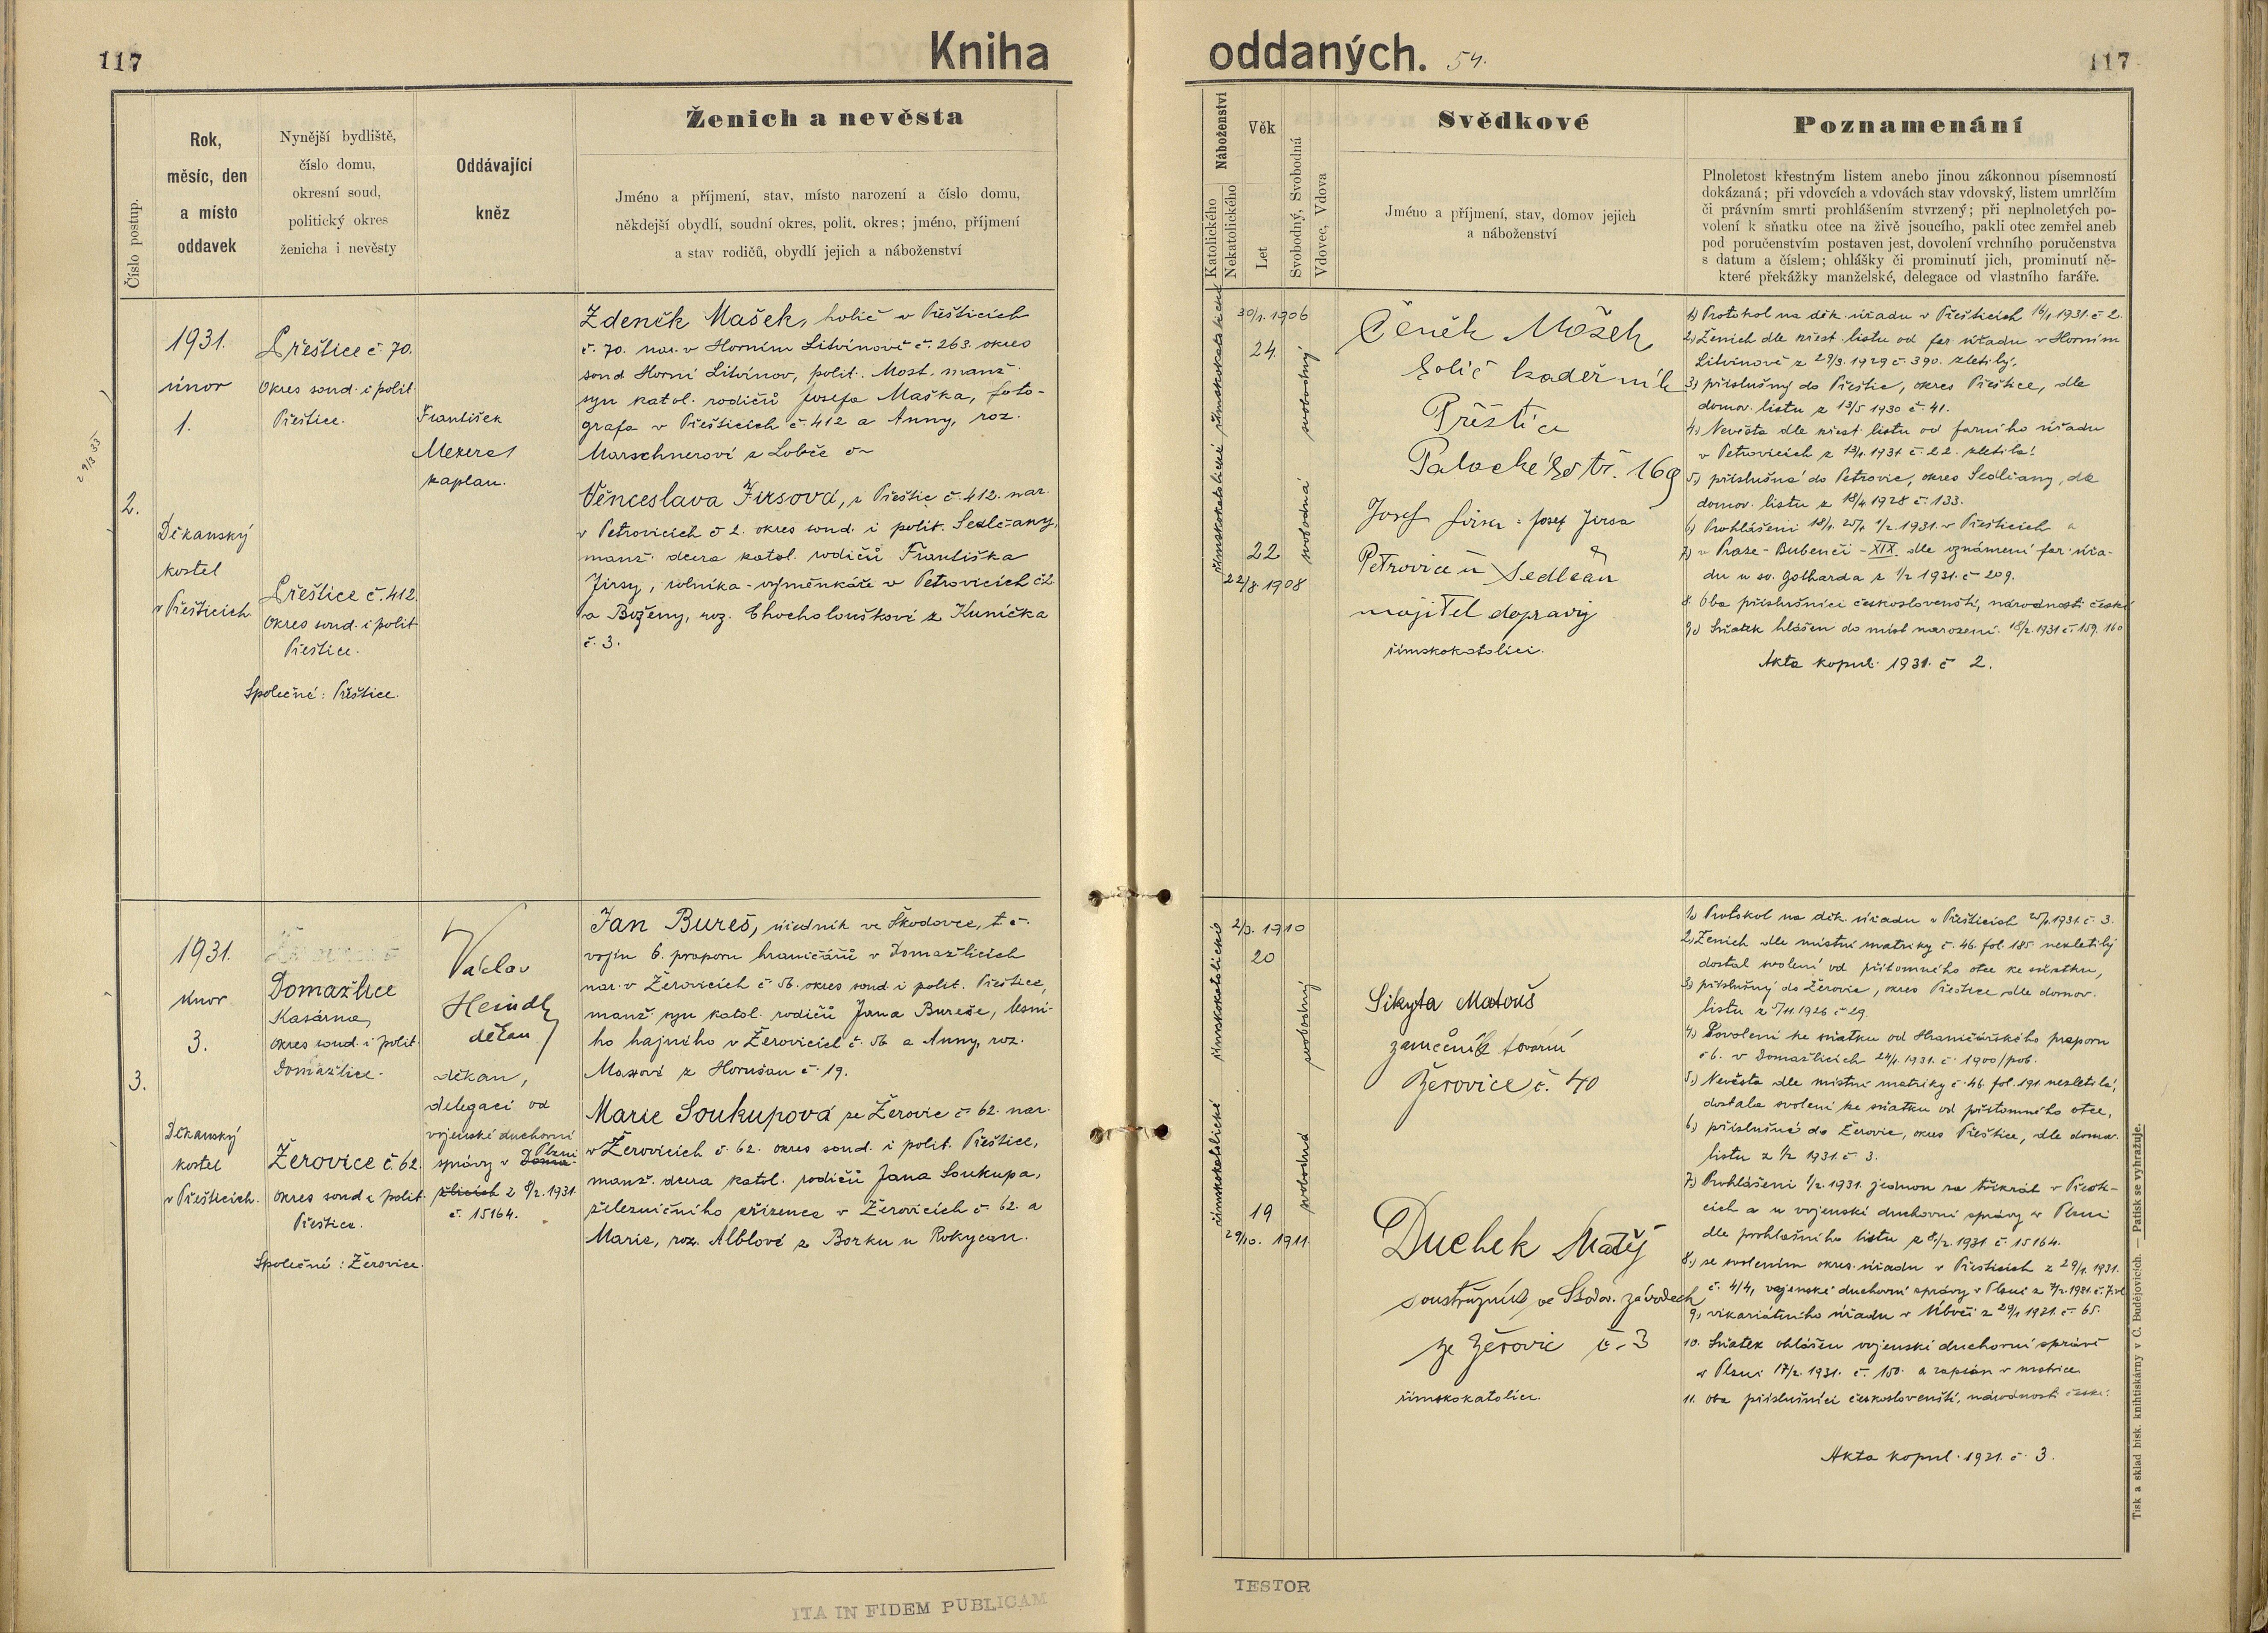 117
Kniha
Číslo postup.
Rok,
měsíc, den
a místo
oddavek
Nynější bydliště,
číslo domu,
okresní soud,
politický okres
ženicha i nevěsty
Oddávající
kněz
Ženich a nevěsta
Jméno a příjmení, stav, místo narození a číslo domu,
někdejší obydlí, soudní okres, polit. okres; jméno, příjmení
a stav rodičů, obydlí jejich a náboženství
2.
1931.
únor
1.
Děkanský
kostel
v Přešticích
Přeštice č. 70.
Okres soud. i polit.
Přeštice.
Přeštice č. 412.
Okres soud. i polit
Přeštice.
Společné: Přeštice.
František
kaplan.
Zdeněk Mašek, holič v Přešticích
č. 70. nar. v Horním Litvínově č. 263. okres
soud Horní Litvínov, polit. Most. manž.
syn katol. rodičů Josefa Maška, foto-
grafa v Přešticích č. 412 a Anny, roz.
Marschnerové z Lobče
Věnceslava Jirsová, z Přeštic č. 412. nar.
v Petrovicích č 2. okres soud. i polit. Sedlčany,
manž. dcera katol. rodičů Františka
Jirsy, rolníka - výměnkáře v Petrovicích č 2
a Boženy, roz. Chocholouškové z Kuníčka
č. 3.
3.
1931.
únor
3.
Děkanský
kostel
v Přešticích.
Domažlice
Kasárna,
okres soud. i polit.
Domažlice.
Žerovice č. 62.
okres soud i polit.
Přeštice.
Společné: Žerovice.
Václav
Heindl
děkan
děkan,
delegací od
vojenské duchovní
Plzni
správy v Doma-
žlicích z 8/2. 1931.
č. 15164.
Jan Bureš, úředník ve Škodovce, t. č.
vojín 6. praporu hraničářů v Domažlicích
nar. v Žerovicích č 56. okres soud. i polit. Přeštice,
manž. syn katol. rodičů Jana Bureše, lesní-
ho hajného v Žerovicích č. 56 a Anny, roz.
z Horušan č. 19.
Marie Soukupová ze Žerovic č 62. nar.
v Žerovicích č. 62. okres soud. i polit. Přeštice,
manž. dcera katol. rodičů Jana Soukupa,
železničního zřízence v Žerovicích č. 62. a
Marie, roz. Alblové z Borku u Rokycan.
ITA IN FIDEM PUBLICAM
oddaných. 54.
117
Náboženství
Katolického
Nekatolického
Věk
Let
Svobodný, Svobodná
Vdovec, Vdova
Svědkové
Jméno a příjmení, stav, domov jejich
a náboženství
Poznamenání
Plnoletost křestným listem anebo jinou zákonnou písemností
dokázaná; při vdovcích a vdovách stav vdovský, listem umrlčím
či právním smrti prohlášením stvrzený; při neplnoletých po-
volení k sňatku otce na živě jsoucího, pakli otec zemřel aneb
pod poručenstvím postaven jest, dovolení vrchního poručenstva
s datum a číslem; ohlášky či prominutí jich, prominutí ně-
které překážky manželské, delegace od vlastního faráře.
římskokatolické
římskokatolické
30/1. 1906
24.
22
22/8 1908
svobodný
svobodná
Čeněk Mašek
holič kadeřník
Přeštice
Palackého tř. 169
Josef Jirsa = Josef Jirsa
Petrovice u Sedlčan
majitel dopravy
římskokatolíci.
1) Protokol na děk. úřadu v Přešticích 16/1. 1931. č 2.
2.) Ženich dle křest. listu od far. úřadu v Horním
Litvínově z 29/3. 1929 č. 390. zletilý.
3.) příslušný do Přeštic, okres Přeštice, dle
domov. listu z 13/5 1930 č. 41.
4.) Nevěsta dle křest listu od farního úřadu
v Petrovicích z 13/1. 1931. č. 22. zletilá!
5.) příslušná do Petrovic, okres Sedlčany, dle
domov. listu z 18/4 1928 č. 133.
6.) Prohlášeni 18/1. 25/1. 1/2. 1931. v Přešticích a
7.) v Praze - Bubenči - XIX. dle oznámení far. úřa-
du u sv. Gotharda z 1/2 1931. č 209.
8. Oba příslušníci českoslovenští, národnosti české
9.) Sňatek hlášen do míst narození. 18/2. 1931 č. 159. 160
Akta kopul. 1931. č 2.
římskokatolické
římskokatolické
2/3. 1910
20
19
29/10. 1911.
svobodný
svobodná
Sikyta Matouš
zámečník tovární
Žerovice č. 40
Duchek Matěj
soustružník ve Škodov. závodech
ze Žerovic č. 3
římskokatolíci.
1.) Protokol na děk. úřadu v Přešticích 25/1. 1931. č. 3.
2.) Ženich dle místní matriky č. 46. fol. 185. nezletilý
dostal svolení od přítomného otce ke sňatku,
3.) příslušný do Žerovic, okres Přeštice, dle domov.
listu z 5/11. 1926 č 29.
4.) Dovolení ke sňatku od Hraničářského praporu
č 6. v Domažlicích 24/1. 1931. č. 1900/pob.
5.) Nevěsta dle místní matriky č. 46. fol. 191 nezletilá,
dostala svolení ke sňatku od přítomného otce,
6.) příslušná do Žerovic, okres Přeštice, dle domov.
listu z 1/2 1931. č. 3.
7.) Prohlášeni 1/2. 1931. jednou za třikrát v Přešti-
cích a u vojenské duchovní správy v Plzni
dle prohlašního listu z 8/2. 1931. č. 15164.
8.) se svolením okres. úřadu v Přešticích z 29/1. 1931.
č. 4/4, vojenské duchovní správy v Plzni z 7/2. 1931. č.
9, vikariátního úřadu v Úboči z 29/1 1931. č. 65.
10. Sňatek ohlášen vojenské duchovní správě
v Plzni 17/2. 1931. č. 150. a zapsán v matrice
11. Oba příslušníci českoslovenští, národnosti české.
Akta kopul. 1931. č. 3.
Tisk a sklad bisk. knihtiskárny v Č. Budějovicích. — Patisk se vyhražuje.
TESTOR